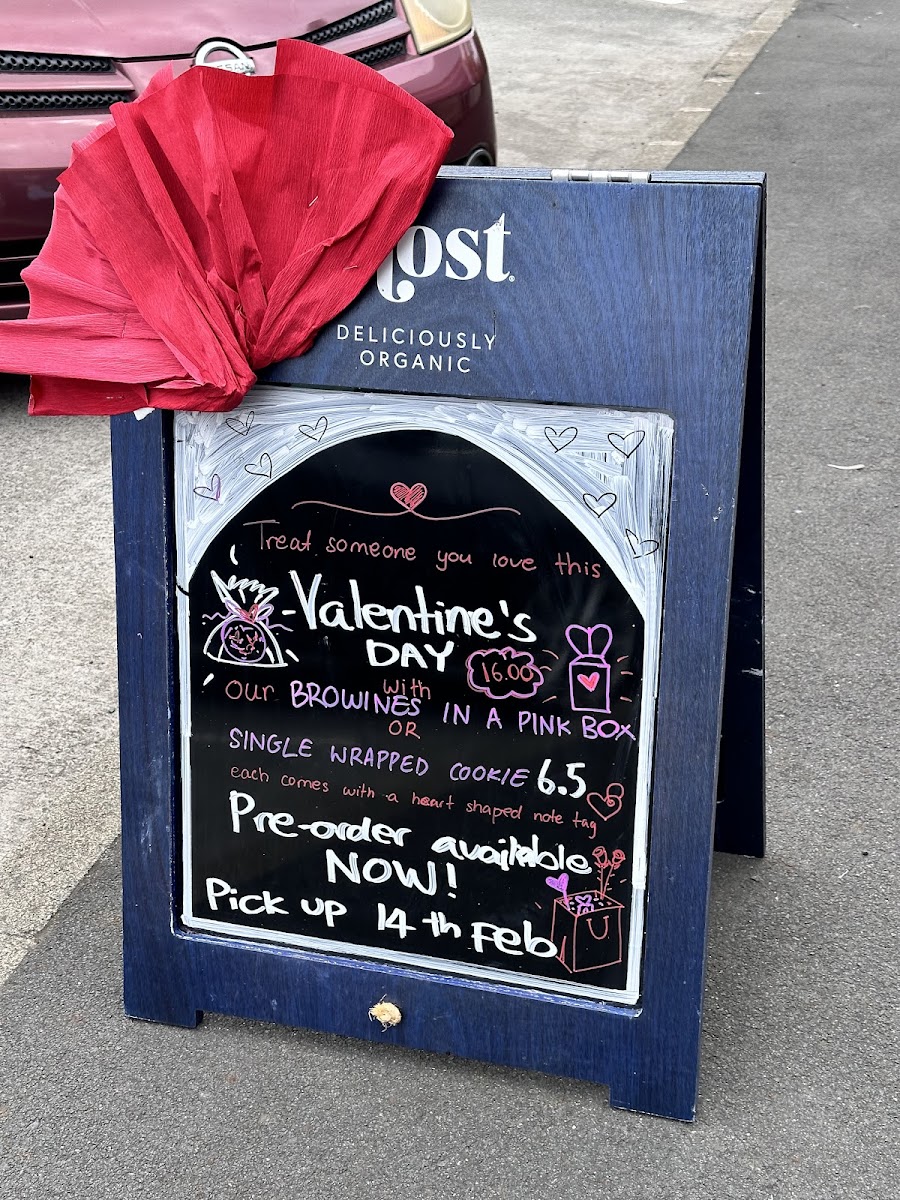 DELICIOUSLY
ORGANIC
Treat someone you love this
Valentine's
DAY
16.00
with
our BROWINES IN A PINK BOX
OR
SINGLE WRAPPED COOKIE 6.5
each comes with a heart shaped note tag
Pre-order available
NOW!
Pick up 14th Feb